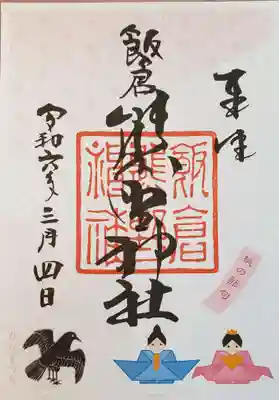 奉拝
飯倉
熊野神社
飯倉熊野神社
令和六年三月四日
桃の節句